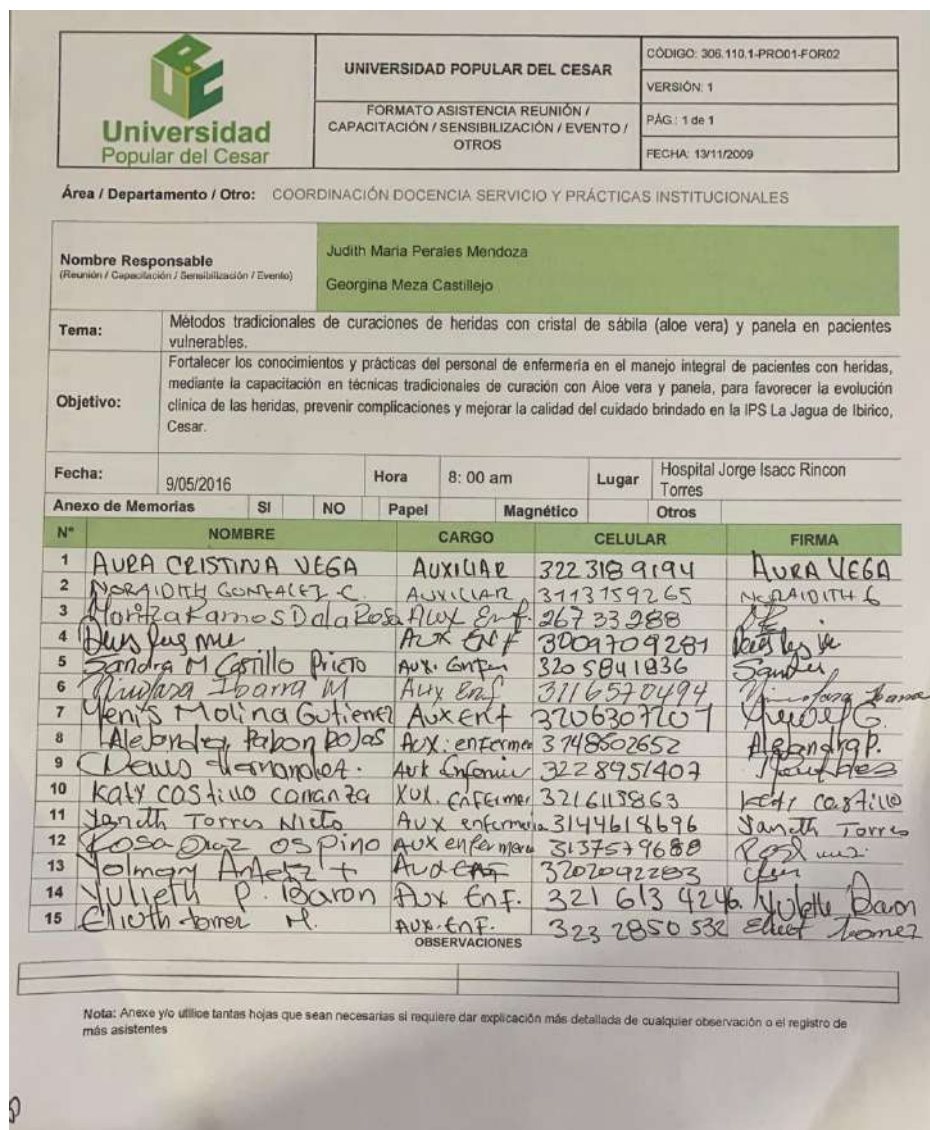 Universidad
Popular del Cesar
UNIVERSIDAD POPULAR DEL CESAR
FORMATO ASISTENCIA REUNIÓN /
CAPACITACIÓN / SENSIBILIZACIÓN / EVENTO /
OTROS
CÓDIGO: 306.110.1-PRO01-FOR02
VERSIÓN: 1
PÁG.: 1 de 1
FECHA: 13/11/2009
Área / Departamento / Otro: COORDINACIÓN DOCENCIA SERVICIO Y PRÁCTICAS INSTITUCIONALES
Nombre Responsable
(Reunión / Capacitación / Sensibilización / Evento)
Judith Maria Perales Mendoza
Georgina Meza Castillejo
Tema: Métodos tradicionales de curaciones de heridas con cristal de sábila (aloe vera) y panela en pacientes
vulnerables.
Objetivo: Fortalecer los conocimientos y prácticas del personal de enfermería en el manejo integral de pacientes con heridas,
mediante la capacitación en técnicas tradicionales de curación con Aloe vera y panela, para favorecer la evolución
clínica de las heridas, prevenir complicaciones y mejorar la calidad del cuidado brindado en la IPS La Jagua de Ibirico,
Cesar.
Fecha: 9/05/2016 Hora 8: 00 am Lugar Hospital Jorge Isacc Rincon
Torres
Anexo de Memorias SI NO Papel Magnético Otros
N° NOMBRE CARGO CELULAR FIRMA
1 AURA CRISTINA VEGA AUXILIAR 322 318 9194 AURA VEGA
2 NORAIDITH GONZALEZ C. AUXILIAR 3113159265 NORAIDITH G
3 Maritza Ramos Dala Rosa Aux Enf. 267 33 288
4 Aux Enf 3009709281
5 Sandra M Castillo Prieto Aux. Enfer 320 5841836 Sandra
6 Ibarra M Aux Enf 3116570494 Ibarra
7 Yenis Molina Gutierrez Aux Enf 3206307207
8 Alejandra Pabon Rojas Aux: enfermer 3148502652 Alejandra P.
9 Denis Hernandez. Aux Enfermer 3228951407
10 Katy Castillo carranza AUX. Enfermer 3216113863 Kety castillo
11 Yaneth Torres Nieto Aux enfermeria 3144618696 Yaneth Torres
12 Rosa Diaz Ospino Aux enfermera 3137579688
13 Aux Enf 3202092283
14 Yulieth P. Baron Aux Enf. 321 613 4246. Baron
15 M. Aux. Enf. 323 2850 532 Gomez
OBSERVACIONES
Nota: Anexe y/o utilice tantas hojas que sean necesarias si requiere dar explicación más detallada de cualquier observación o el registro de
más asistentes